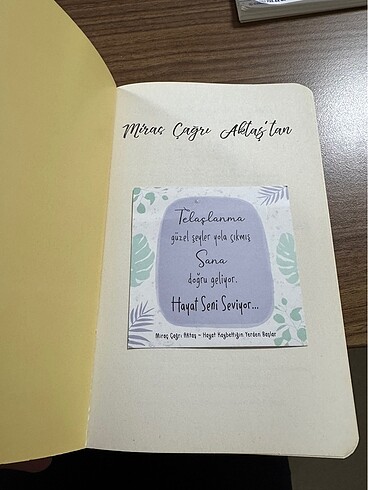 Miraç Çağrı Aktaş'tan
Telaşlanma
güzel şeyler yola çıkmış
Sana
doğru geliyor.
Hayat Seni Seviyor...
Miraç Çağrı Aktaş - Hayat Kaybettiğin Yerden Başlar